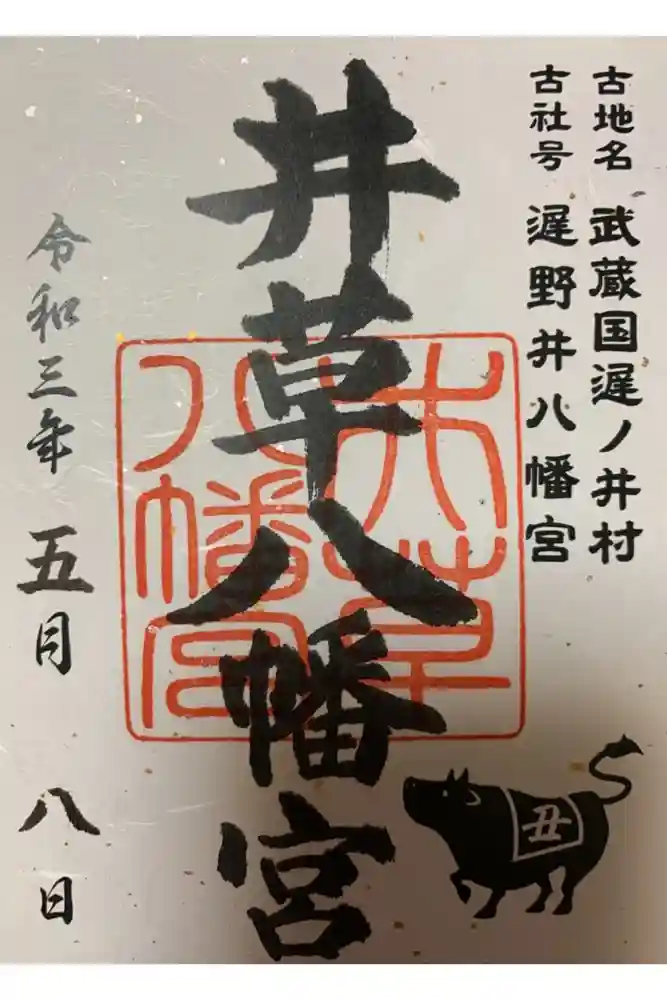 古地名 武蔵国遅ノ井村
古社号 遅野井八幡宮
井草八幡宮
八幡宮
丑
令和三年 五月 八日